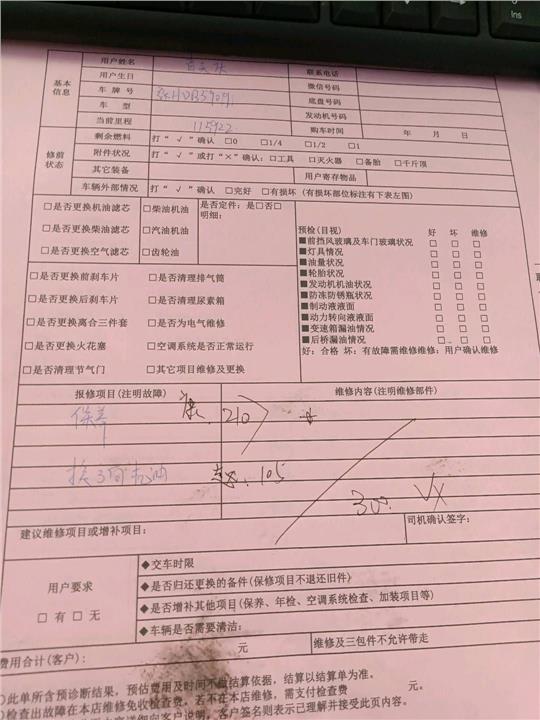 Ins
基本信息
用户姓名
联系电话
用户生日
微信号码
车 牌 号
底盘号码
车 型
发动机号码
当前里程 115922
购车时间 年 月 日
修前状态
剩余燃料 打“√”确认 □0 □1/4 □1/2 □1
附件状况 打“√”或打“×”确认:□工具 □灭火器 □备胎 □千斤顶
其它装备 用户寄存物品
车辆外部情况 打“√”确认 □完好 □有损坏 (有损坏部位标注有下表左图)
□是否更换机油滤芯 □柴油机油
□是否更换柴油滤芯 □汽油机油
□是否更换空气滤芯 □齿轮油
是否定件:是□否□
明细:
□是否更换前刹车片 □是否清理排气筒
□是否更换后刹车片 □是否清理尿素箱
□是否更换离合三件套 □是否为电气维修
□是否更换火花塞 □空调系统是否正常运行
□是否清理节气门 □其它项目维修及更换
预检(目视) 好 坏 维修
■前挡风玻璃及车门玻璃状况 □ □ □
■灯具情况 □ □ □
■油量状况 □ □ □
■轮胎状况 □ □ □
■发动机机油状况 □ □ □
■防冻防锈瓶状况 □ □ □
■制动液液面 □ □ □
■动力转向液液面 □ □ □
■变速箱漏油情况 □ □ □
■后桥漏油情况 □ □ □
好:合格 坏:有故障需维修维修:用户确认维修
报修项目(注明故障) 维修内容(注明维修部件)
保养 210
105
建议维修项目或增补项目:
司机确认签字:
用户要求
□ 有 □ 无
◆交车时限
◆是否归还更换的备件(保修项目不退还旧件)
◆是否增补其他项目(保养、年检、空调系统检查、加装项目等)
◆车辆是否需要清洁:
费用合计(客户): 元 维修及三包件不允许带走
此单所含预诊断结果,预估费用及时间不做结算依据,结算以结算单为准。
检查出故障在本店维修免收检查费,若不在本店维修,需支付检查费 元。
客户说明,客户签名则表示已理解并接受此页内容。